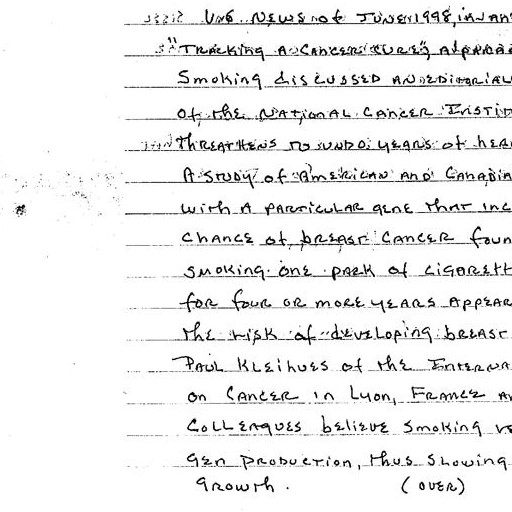 UNG NEWS of JUNE 1998, in an
"TRACKING A CANCER CURE",
Smoking discussed an editorial
of the NATIONAL CANCER INSTI
THREATHENS TO UNDO YEARS of HEA
A STUDY of AMERICAN AND CANADIA
with A PARTICULAR gene THAT INC
CHANCE of breast CANCER foun
smoking one pack of cigarett
for four OR more years APPEAR
the risk of developing breast
PAUL KLEIHUES of the INTERNA
on CANCER in Lyon, FRANCE A
COLLEAGUES believe smoking
gen PRODUCTION, thus slowing
growth. (OVER)